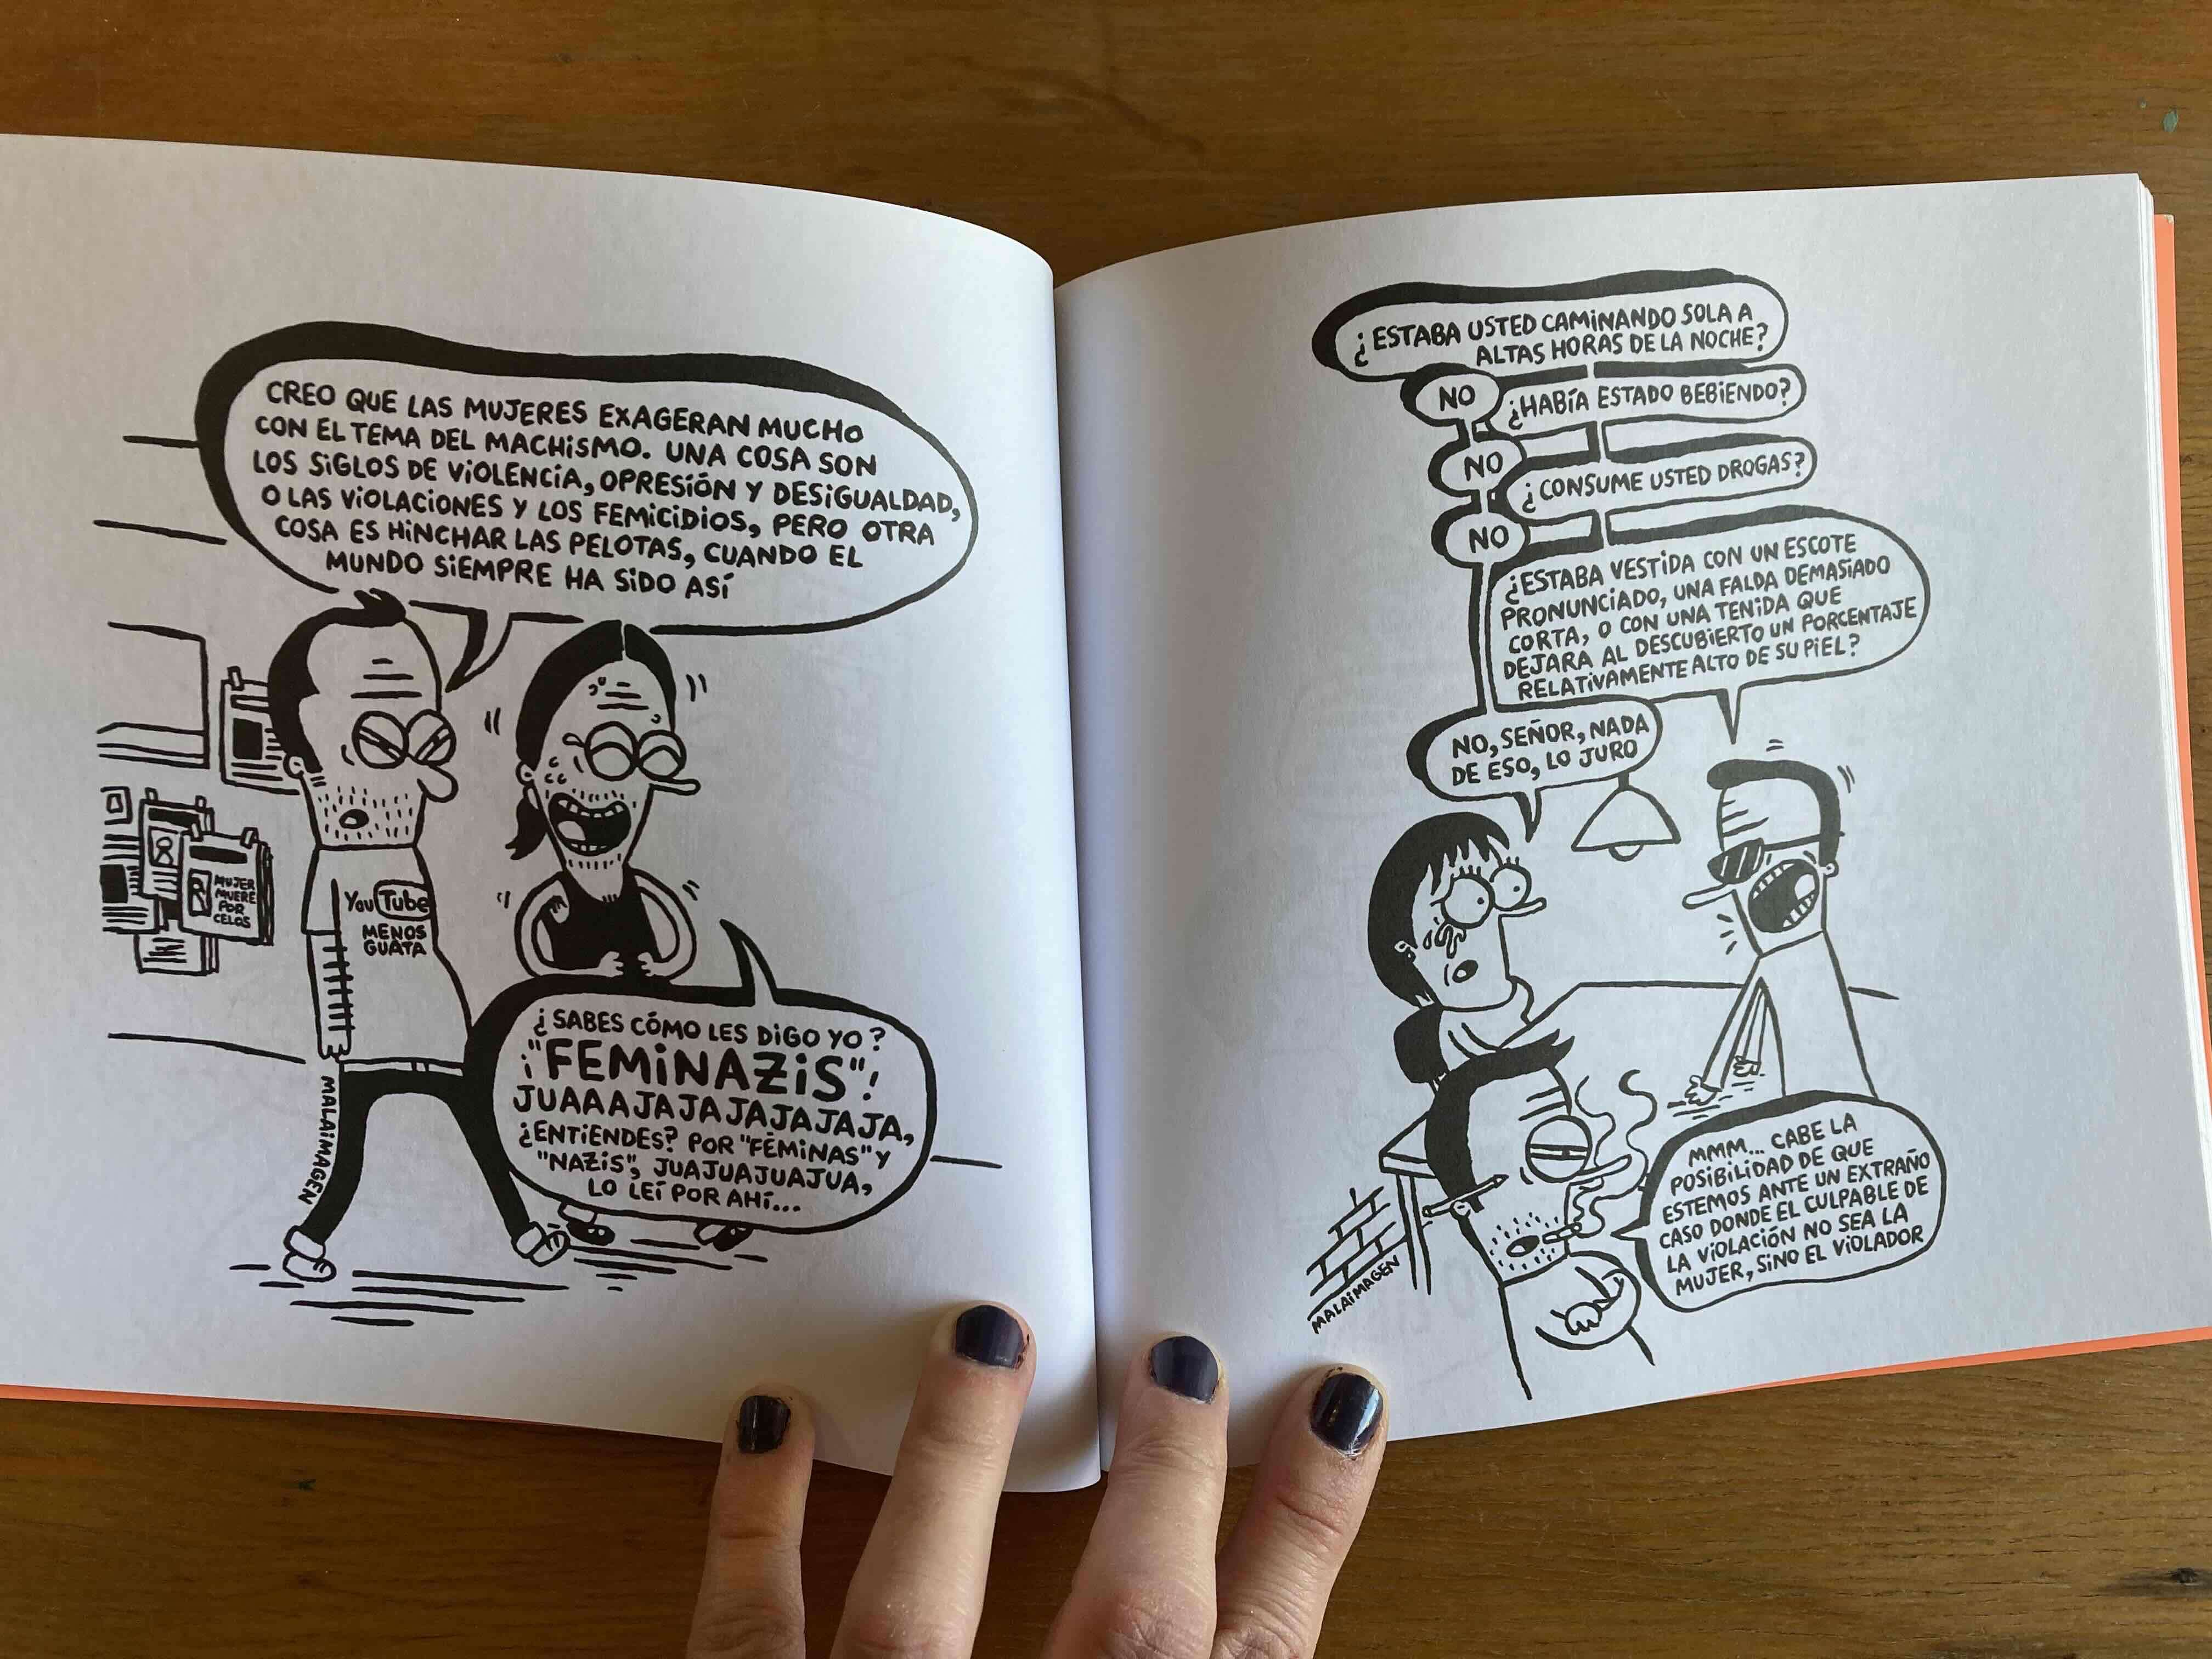 CREO QUE LAS MUJERES EXAGERAN MUCHO
CON EL TEMA DEL MACHISMO. UNA COSA SON
LOS SIGLOS DE VIOLENCIA, OPRESIÓN Y DESIGUALDAD,
O LAS VIOLACIONES Y LOS FEMICIDIOS, PERO OTRA
COSA ES HINCHAR LAS PELOTAS, CUANDO EL
MUNDO SIEMPRE HA SIDO ASÍ
MUJER
MUERE
POR
CELOS
YouTube
MENOS
GUATA
¿SABES CÓMO LES DIGO YO?
¡"FEMINAZIS"!
JUAAAJAJAJAJAJAJA,
¿ENTIENDES? POR "FÉMINAS" Y
"NAZIS", JUAJUAJUAJUA,
LO LEÍ POR AHÍ...
MALAIMAGEN
¿ESTABA USTED CAMINANDO SOLA A
ALTAS HORAS DE LA NOCHE?
NO
¿HABÍA ESTADO BEBIENDO?
NO
¿CONSUME USTED DROGAS?
NO
¿ESTABA VESTIDA CON UN ESCOTE
PRONUNCIADO, UNA FALDA DEMASIADO
CORTA, O CON UNA TENIDA QUE
DEJARA AL DESCUBIERTO UN PORCENTAJE
RELATIVAMENTE ALTO DE SU PIEL?
NO, SEÑOR, NADA
DE ESO, LO JURO
MMM... CABE LA
POSIBILIDAD DE QUE
ESTEMOS ANTE UN EXTRAÑO
CASO DONDE EL CULPABLE DE
LA VIOLACIÓN NO SEA LA
MUJER, SINO EL VIOLADOR
MALAIMAGEN